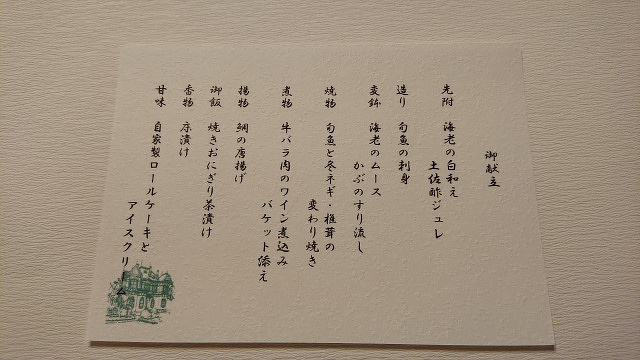 御献立
先附　海老の白和え
土佐酢ジュレ
造り　旬魚の刺身
変鉢　海老のムース
かぶのすり流し
焼物　旬魚と冬ネギ・椎茸の
変わり焼き
煮物　牛バラ肉のワイン煮込み
バケット添え
揚物　鯛の唐揚げ
御飯　焼きおにぎり茶漬け
香物　床漬け
甘味　自家製ロールケーキと
アイスクリーム